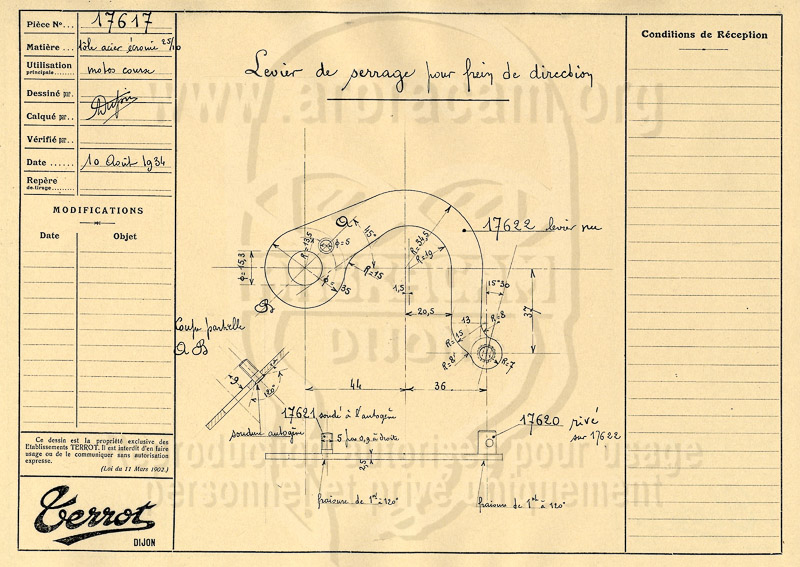 Pièce N°... 17617
Matière ... tôle acier écrouie 25/10
Utilisation
principale........ motos course
Dessiné par.
Calqué par..
Vérifié par..
Date ...... 10 Août 1934
Repère
de tirage........
MODIFICATIONS
Date Objet
Ce dessin est la propriété exclusive des
Etablissements TERROT. Il est interdit d'en faire
usage ou de le communiquer sans autorisation
expresse.
(Loi du 11 Mars 1902.)
Terrot
DIJON
Levier de serrage pour frein de direction
Conditions de Réception
www.aroracam.org
DIJON
reproduction autorisée pour usage
personnel et privé uniquement
17622 levier nu
A
45°
φ=6
R=13,5
φ=15,3
R=15
35
B
R=34,5
R=19
1,5
20,5
15°30
13
R=8
R=15
R=8
R=7
37
44
36
Coupe partielle
A B
120°
soudure autogène
17621 soudé à l'autogène
5 pas 0,9 à droite
2,5
17620 rivé
sur 17622
fraisure de 1 à 120°
fraisure de 1 à 120°